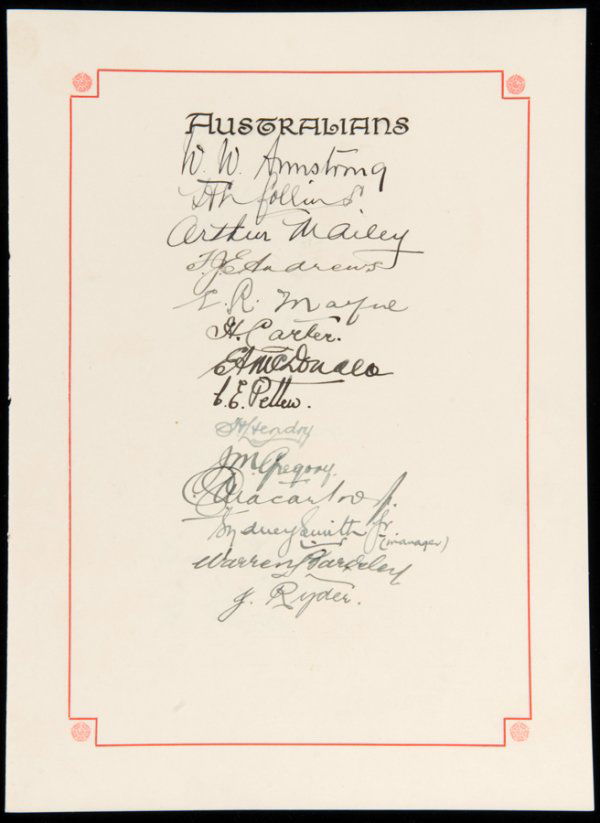 AUSTRALIANS
W. W. Armstrong
H L Collins
Arthur Mailey
T. J. E. Andrews
E. R. Mayne
H. Carter.
E A McDonald
C. E. Pellew.
H L Hendry
J M Gregory.
C. G. Macartney.
Sydney Smith Jr (manager)
Warren Bardsley
J. Ryder.